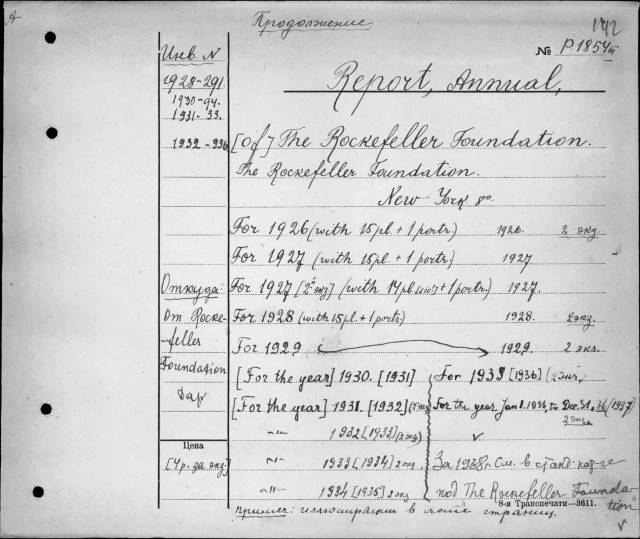 А
Продолжение
142
№ P.1854 III
Инв N
1928-291
1930-94.
1931-33.
1932-336
Report, Annual,
[of] The Rockefeller Foundation.
The Rockefeller Foundation.
New-York 8°.
For 1926 (with 15 pl. + 1 portr.) 1926. 2 экз.
For 1927 (with 15 pl. + 1 portr.) 1927
Откуда: For 1927 [2й экз] (with 14 pl. + 1 portr.) 1927.
от Rocke- For 1928 (with 15 pl. + 1 portr.) 1928. 2 экз.
feller For 1929 1929. 2 экз.
Foundation [For the year] 1930. [1931] For 1935 [1936] (2 экз.
дар [For the year] 1931. [1932] (2 экз) For the year Jan 1. 1936, to Dec. 31. 36 (1937)
2 экз.
-"- 1932 [1933] (2 экз) v
Цена
[Ч р. за экз] -"- 1933 [1934] 2 экз За 1938 г. См. в станд. кат-ге
-"- 1934 [1935] 2 экз под The Rockefeller Founda-
tion"
8-я Транспечати—3611.
Примеч: иллюстрации в счете страниц.
v